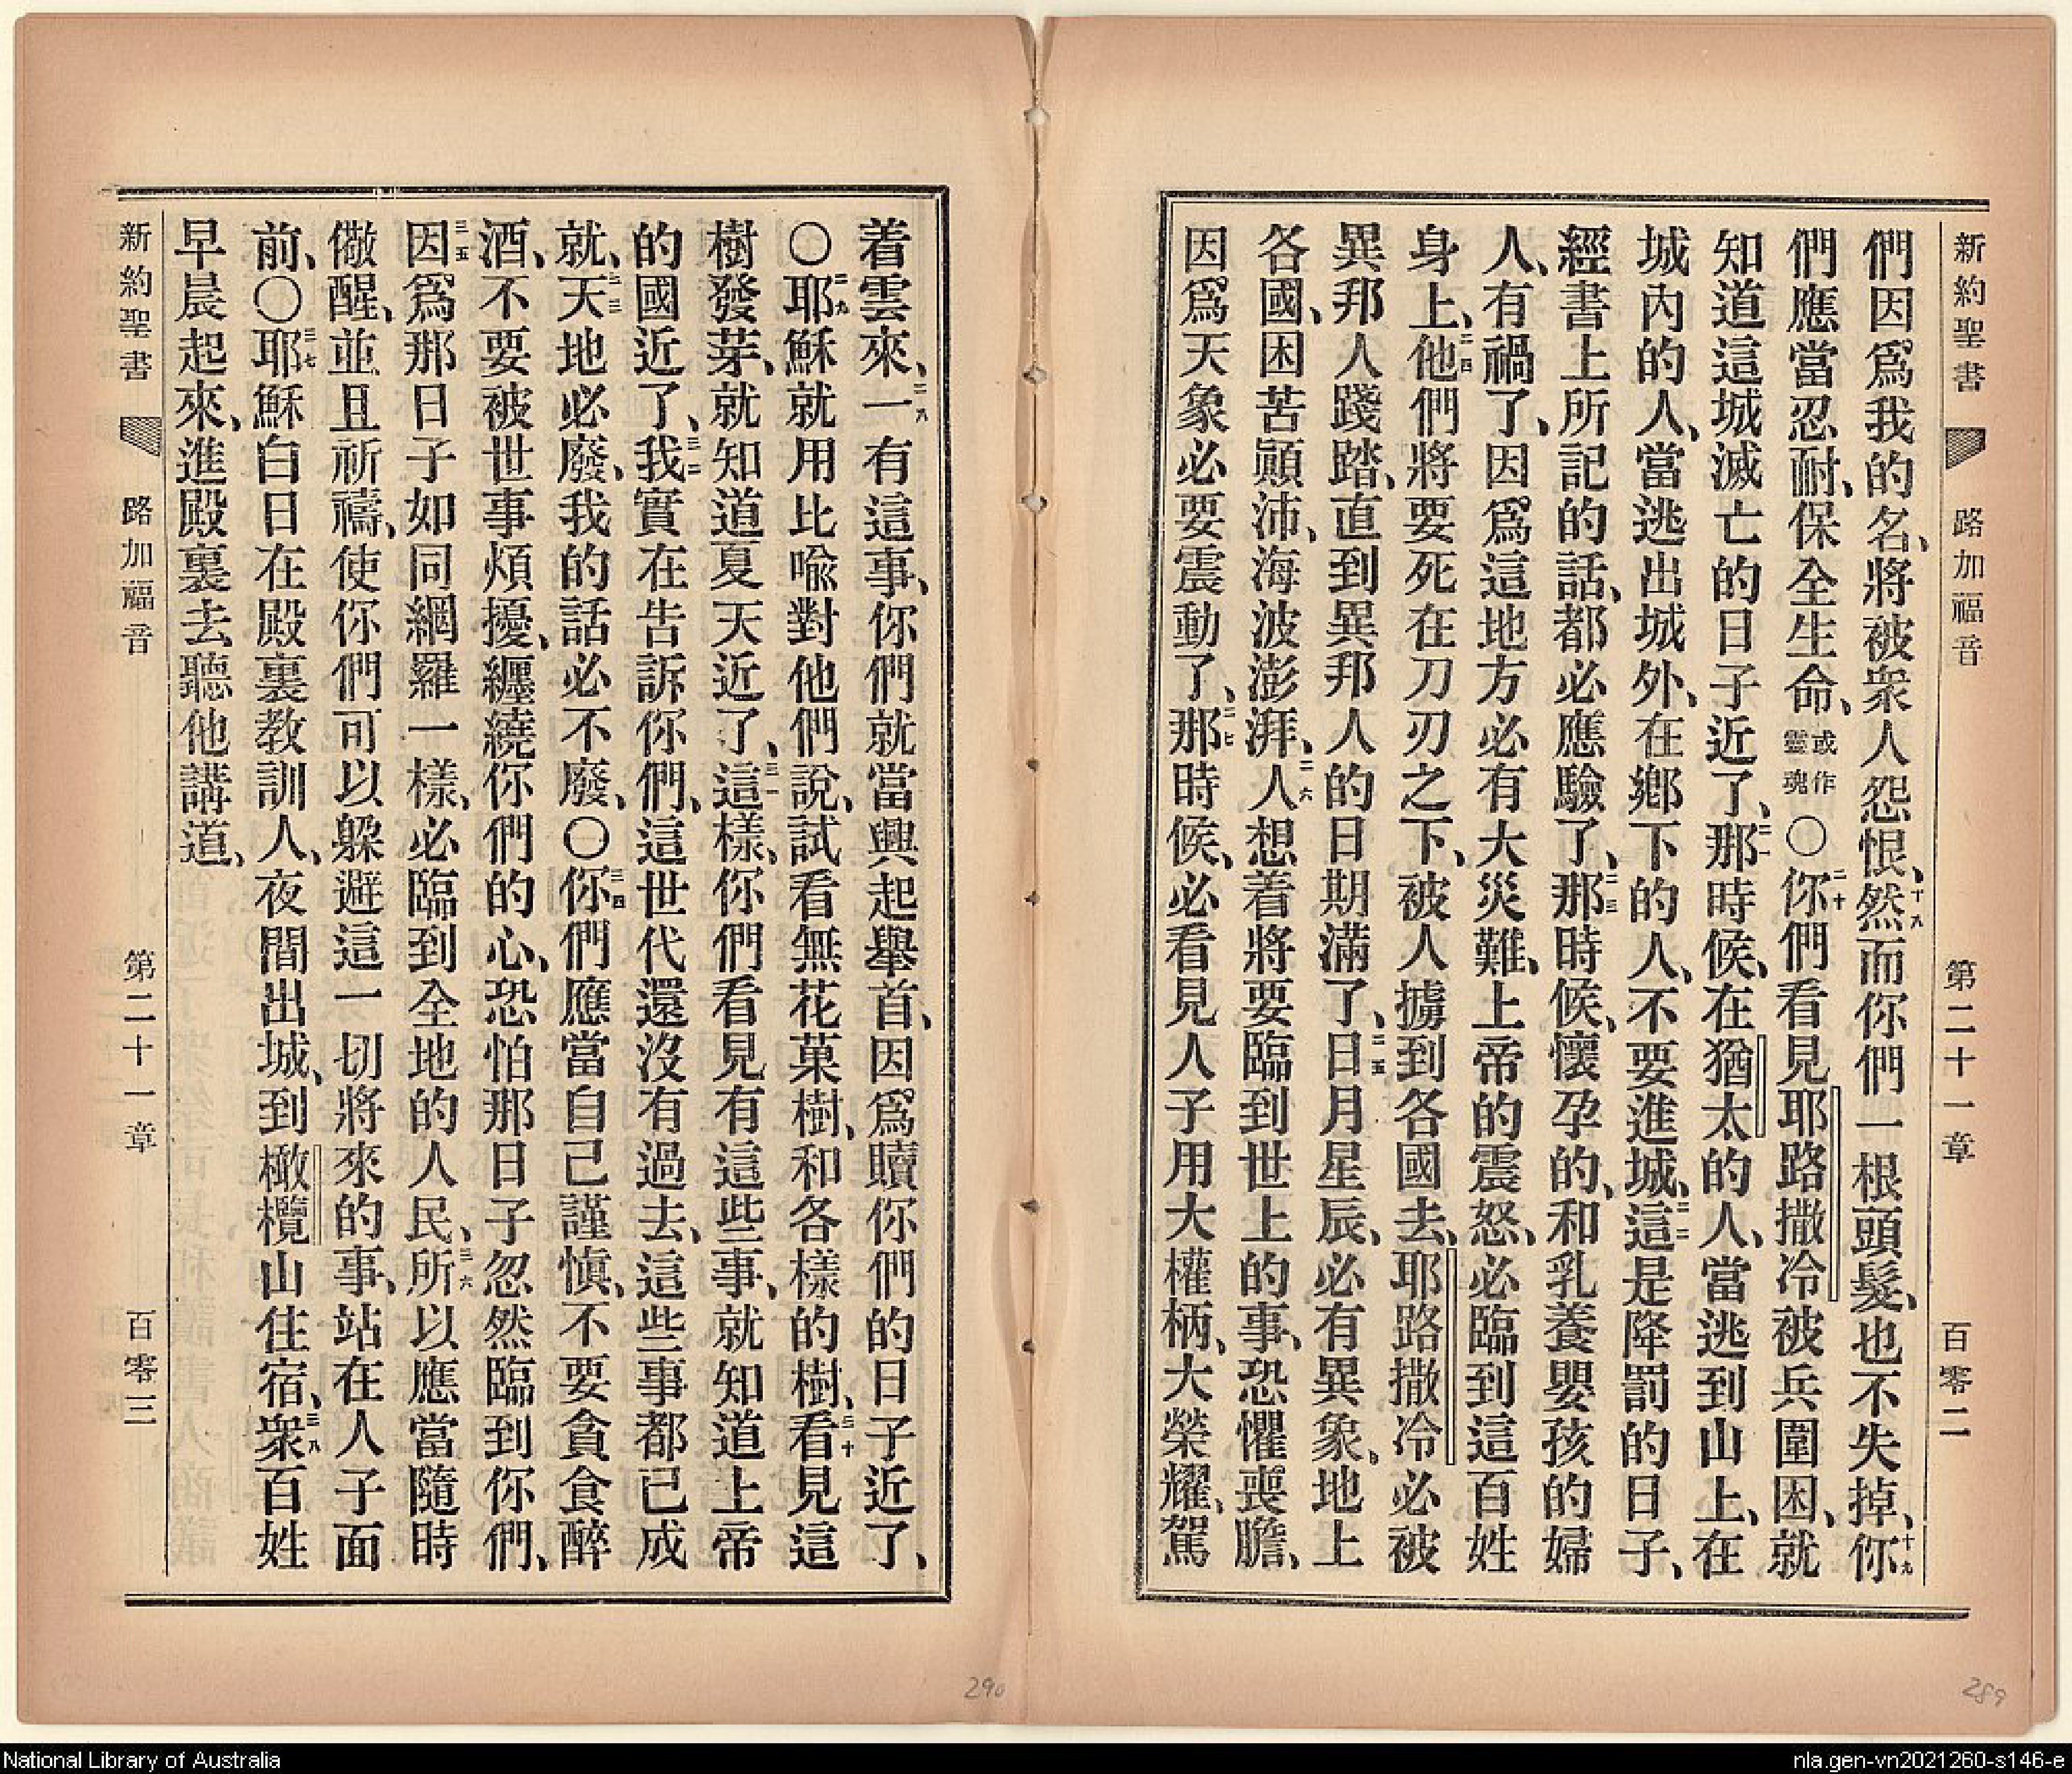 新約聖書 路加福音 第二十一章 百零二
們因爲我的名、將被衆人怨恨、十八然而你們一根頭髮、也不失掉、十九你
們應當忍耐、保全生命、或作靈魂〇二十你們看見耶路撒冷被兵圍困、就
知道這城滅亡的日子近了、二一那時候、在猶太的人、當逃到山上、在
城內的人、當逃出城外、在鄉下的人、不要進城、二二這是降罰的日子、
經書上所記的話、都必應驗了、二三那時候、懷孕的、和乳養嬰孩的婦
人、有禍了、因爲這地方必有大災難、上帝的震怒、必臨到這百姓
身上、二四他們將要死在刀刃之下、被人擄到各國去、耶路撒冷必被
異邦人踐踏、直到異邦人的日期滿了、二五日月星辰、必有異象。地上
各國、困苦顚沛、海波澎湃、二六人想着將要臨到世上的事、恐懼喪膽、
因爲天象必要震動了、二七那時候、必看見人子用大權柄、大榮耀、駕
着雲來、二八一有這事、你們就當興起舉首、因爲贖你們的日子近了、
〇二九耶穌就用比喩對他們說、試看無花菓樹、和各樣的樹、三十看見這
樹發芽、就知道夏天近了、三一這樣、你們看見有這些事、就知道上帝
的國近了、三二我實在告訴你們、這世代還沒有過去、這些事都已成
就、三三天地必廢、我的話必不廢、〇三四你們應當自己謹愼、不要貪食醉
酒、不要被世事煩擾、纏繞你們的心、恐怕那日子忽然臨到你們、
三五因爲那日子如同網羅一樣、必臨到全地的人民、三六所以應當隨時
儆醒、並且祈禱、使你們可以躱避這一切將來的事、站在人子面
前、〇三七耶穌白日在殿裏教訓人、夜間出城、到橄欖山住宿、三八衆百姓
早晨起來、進殿裏去聽他講道、
新約聖書 路加福音 第二十一章 百零三
290
289
National Library of Australia
nla.gen-vn2021260-s146-e